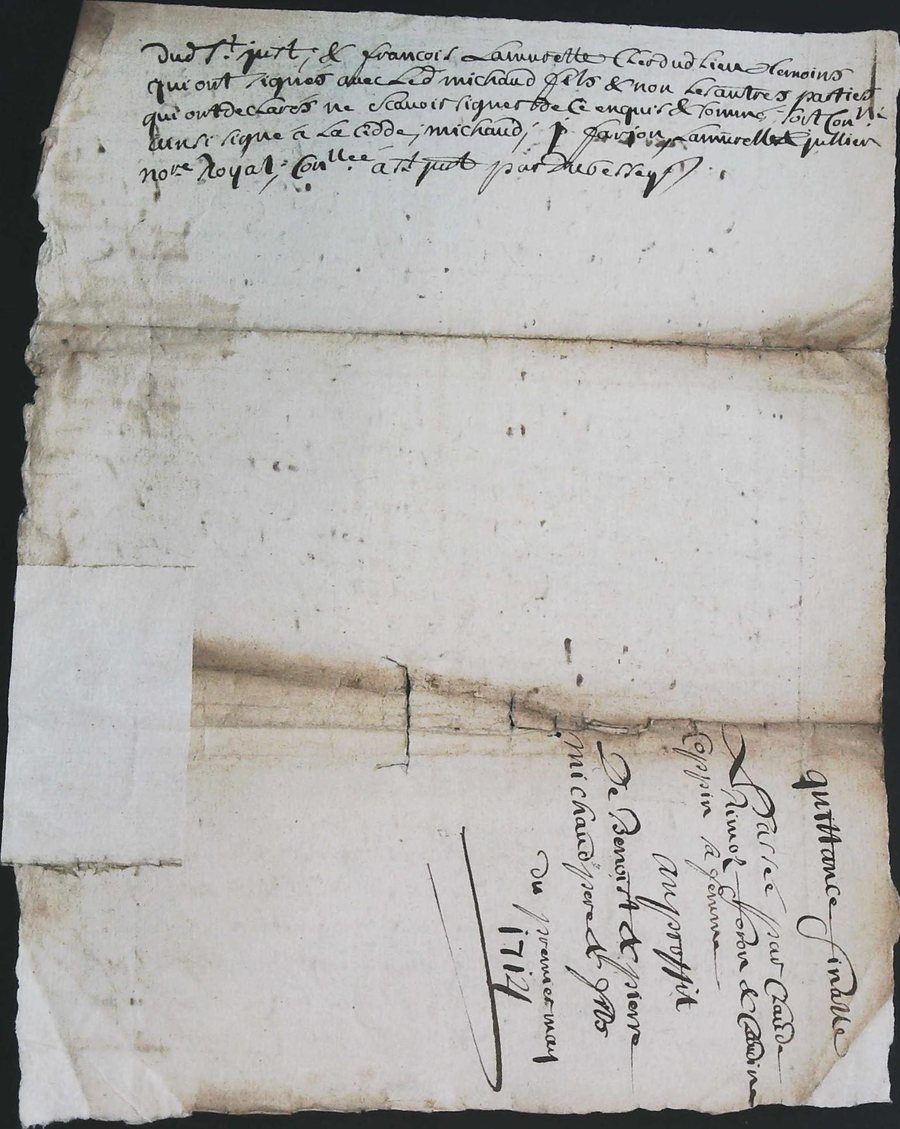 dud St just, & françois Lamurette Clerc dud Lieu temoins
qui ont signés avec Led michaud fils & non Les autres parties
qui ont declarés ne scavoir signer de Ce enquis & somme, soit Con.lle
ainsi signe à La Cedde, michaud, farjon, Lamurette & jullien
no.re Royal; Con.llee à St just par
quittance finalle
Passée par Claude
& Claudine
Coppin sa femme
au proffit
De Benoist & pierre
Michaud pere & fils
du premier may
1712